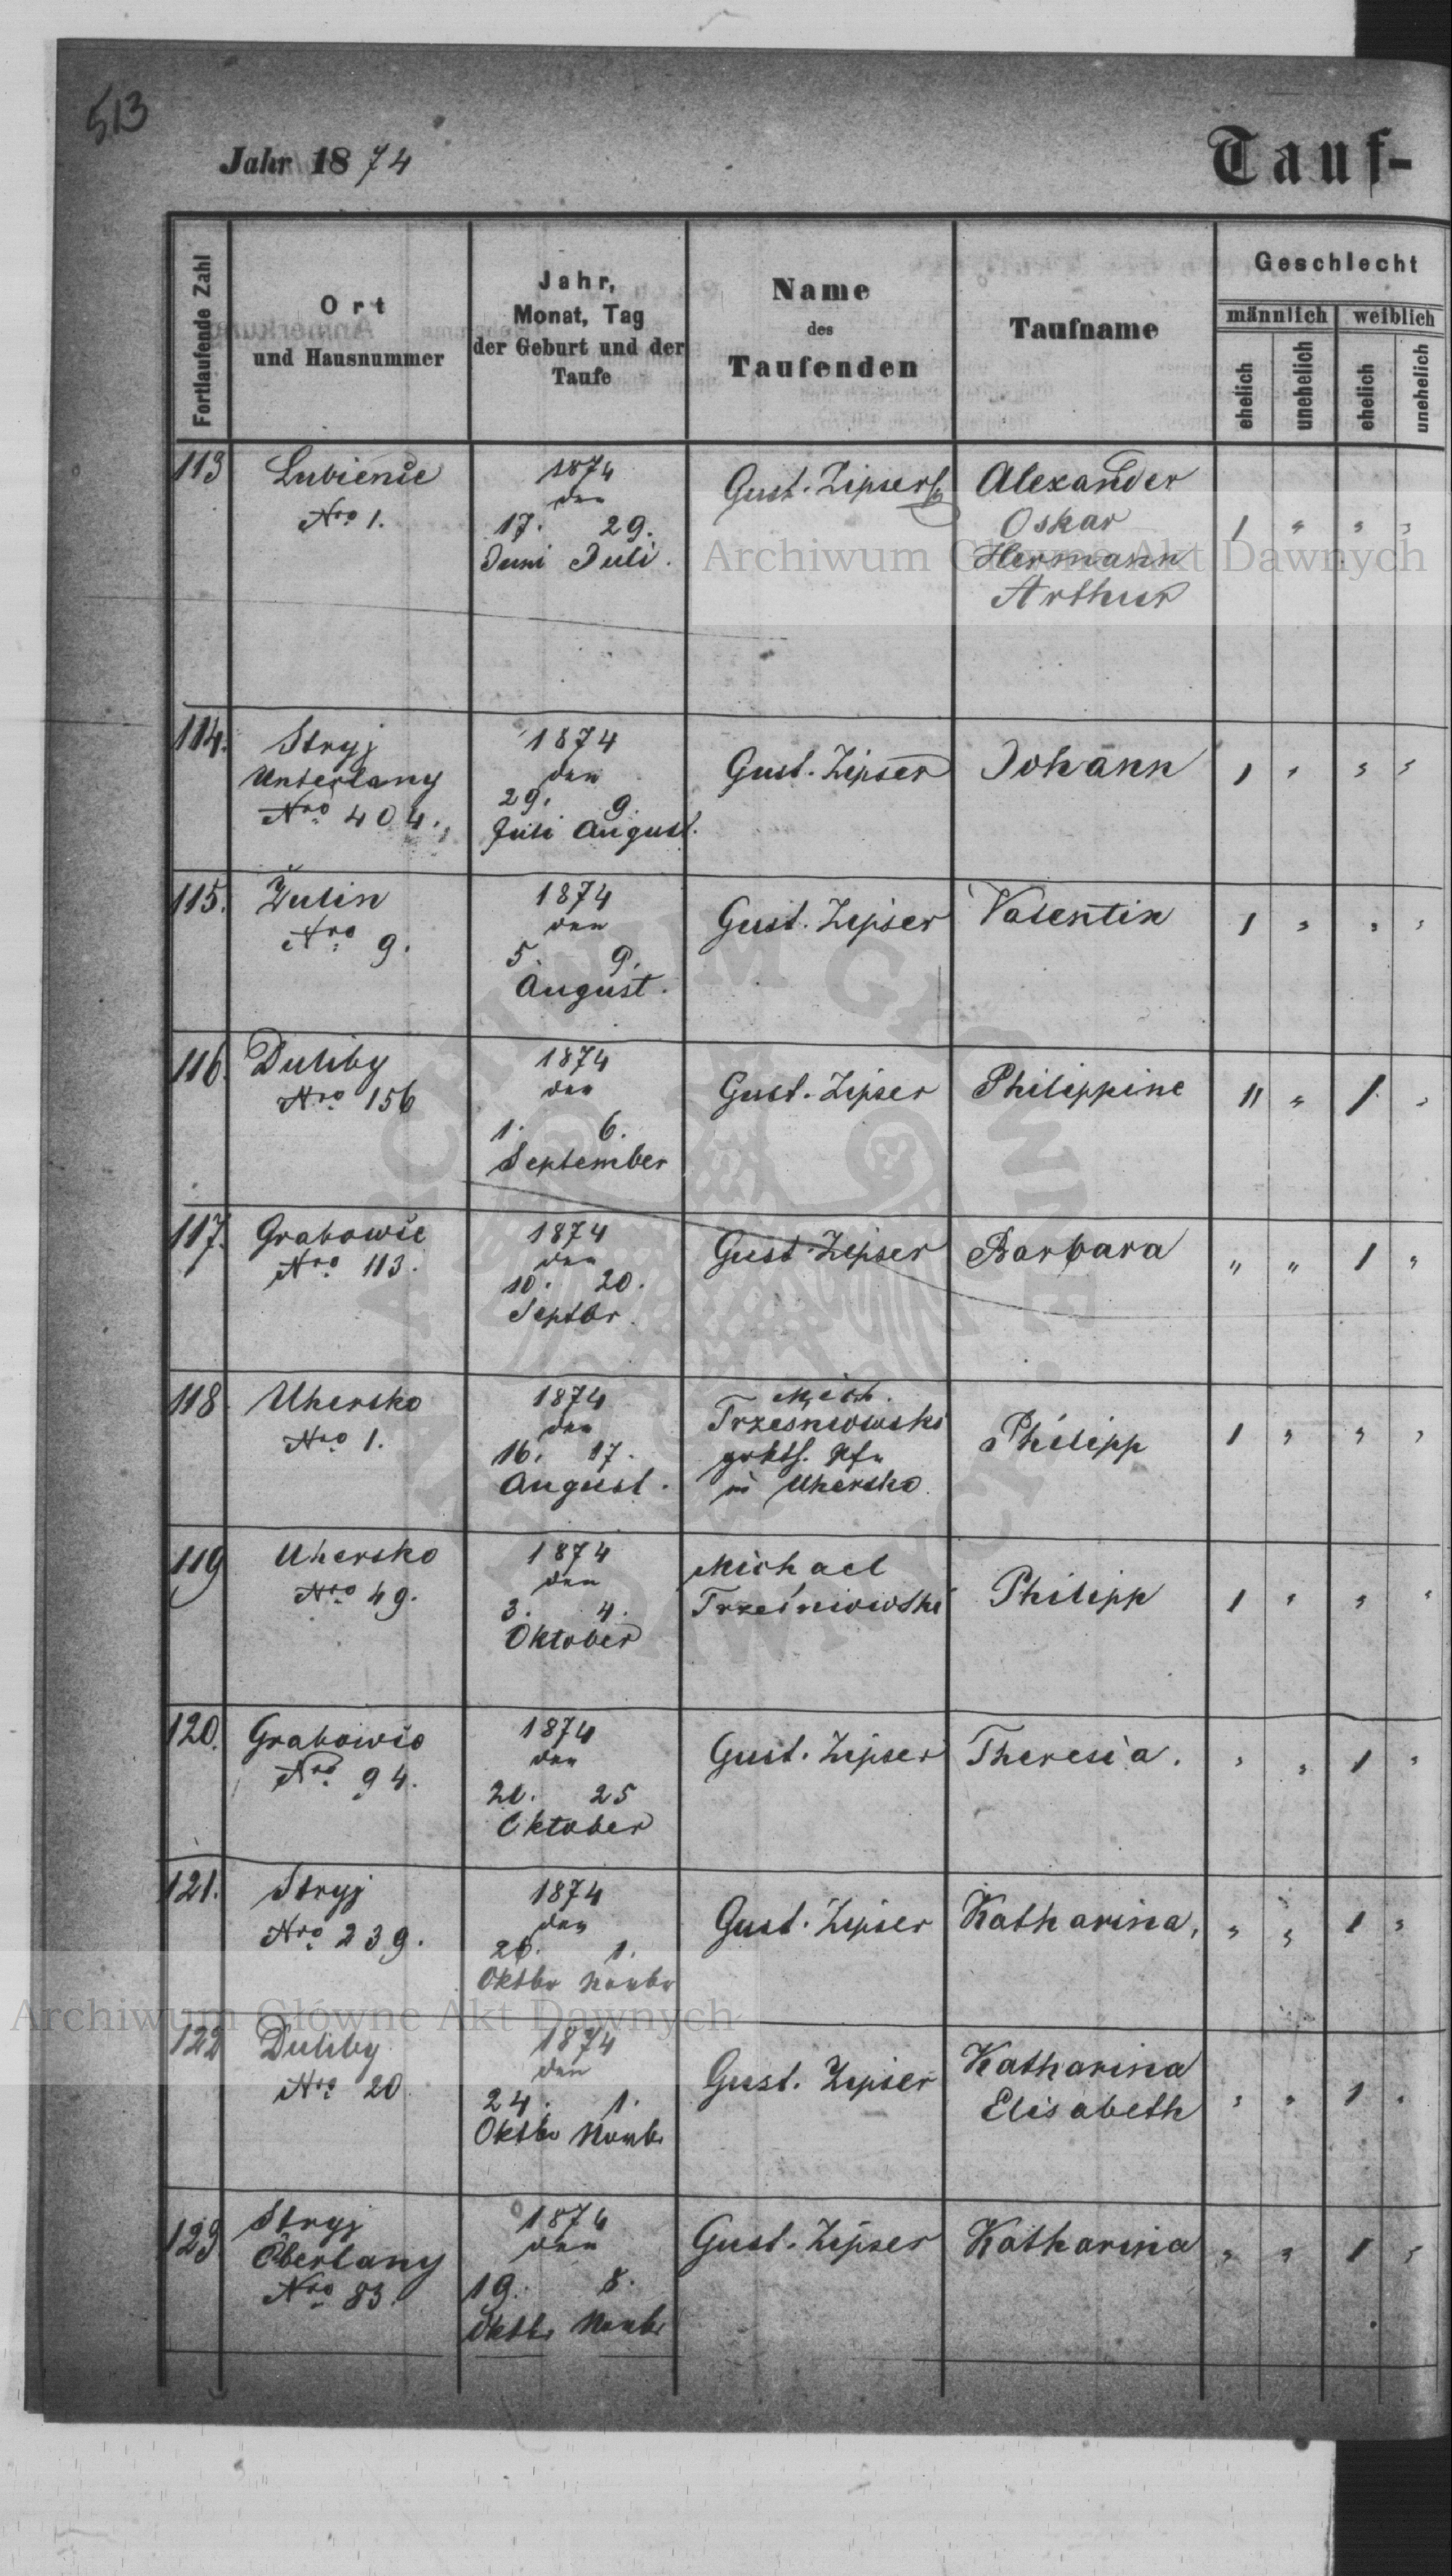 513
Jahr 1874
Tauf-
Fortlaufende Zahl
Ort
und Hausnummer
Jahr,
Monat, Tag
der Geburt und der
Taufe
Name
des
Taufenden
Taufname
Geschlecht
männlich weiblich
ehelich unehelich ehelich unehelich
113 Lubience
Nro 1.
1874
den
17. 29.
Juni Juli.
Gust. Zipser
Alexander
Oskar
Hermann
Arthur
1 " " "
Archiwum Główne Akt Dawnych
114. Stryj
Unterlany
Nro 404.
1874
den
29. 9.
Juli August.
Gust. Zipser
Johann
1 " " "
115. Żulin
Nro 9.
1874
den
5. 9.
August.
Gust. Zipser
Valentin
1 " " "
116. Duliby
Nro 156
1874
den
1. 6.
September
Gust. Zipser
Philippine
" " 1 "
117. Grabowce
Nro 113.
1874
den
10. 20.
Septbr.
Gust. Zipser
Barbara
" " 1 "
118. Uhersko
Nro 1.
1874
den
16. 17.
August.
Mich.
Trzesniowski
in Uhersko.
Philipp
1 " " "
119 Uhersko
Nro 49.
1874
den
3. 4.
Oktober
Michael
Trześniowski
Philipp
1 " " "
120. Grabowce
Nro 94.
1874
den
25
Oktober
Gust. Zipser
Theresia.
" " 1 "
121. Stryj
Nro 239.
1874
den
1.
Oktbr Novbr
Gust. Zipser
Katharina,
" " 1 "
Archiwum Główne Akt Dawnych
122 Duliby
Nro 20
1874
den
24. 1.
Oktbr Novbr
Gust. Zipser
Katharina
Elisabeth
" " 1 "
123 Stryj
Oberlany
Nro 83.
1874
den
19. 8.
Oktbr Novbr
Gust. Zipser
Katharina
" " 1 "